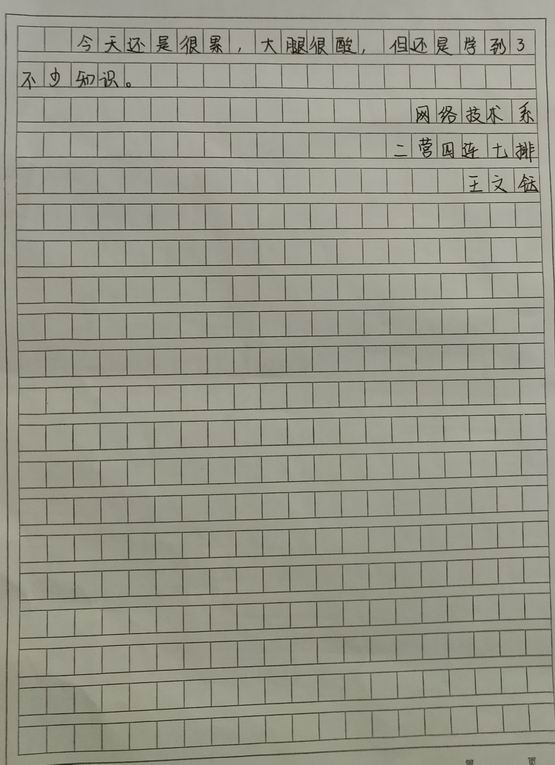 今天还是很累，大腿很酸，但还是学到了
不少知识。
网络技术系
二营四连七排
王文钰